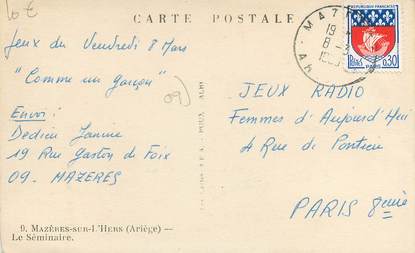 10 €
CARTE POSTALE
Jeux du Vendredi 8 Mars
"Comme un garçon"
09)
Envoi :
Dedieu Janine
19 Rue Gaston de Foix
09. MAZERES
9. MAZÈRES-SUR-L'HERS (Ariège) —
Le Séminaire.
MAZ
19
8-3
RÉPUBLIQUE FRANÇAISE
PARIS
0,30
JEUX RADIO
Femmes d'Aujourd'Hui
4 Rue de Ponthieu
PARIS 8ème